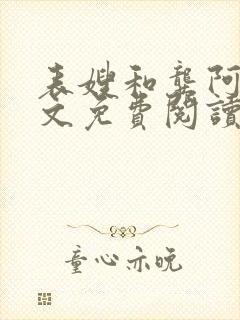 表嫂和龔阿
文免費閱讀
童心亦晚